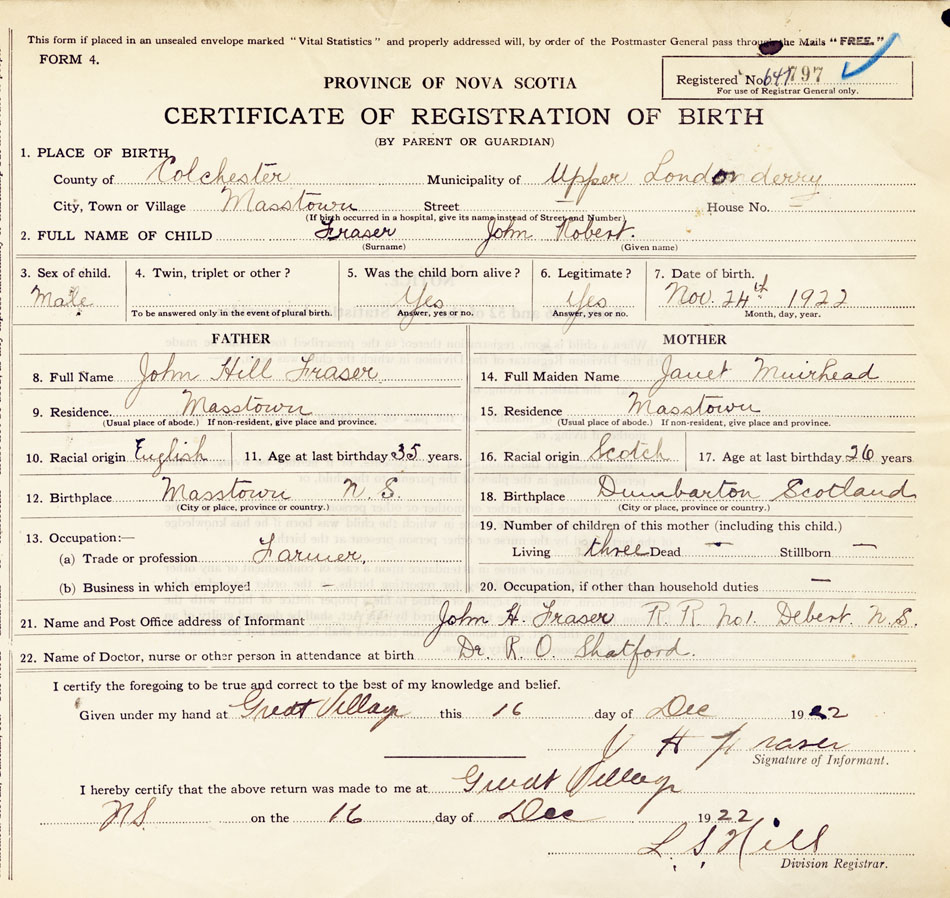 This form if placed in an unsealed envelope marked "Vital Statistics" and properly addressed will, by order of the Postmaster General pass through the Mails "FREE."
FORM 4.
PROVINCE OF NOVA SCOTIA
Registered No. 797
For use of Registrar General only.
CERTIFICATE OF REGISTRATION OF BIRTH
(BY PARENT OR GUARDIAN)
1. PLACE OF BIRTH
County of Colchester Municipality of Upper Londonderry
City, Town or Village Masstown Street — House No. —
(If birth occurred in a hospital, give its name instead of Street and Number)
2. FULL NAME OF CHILD Fraser John Robert.
(Surname) (Given name)
3. Sex of child. 4. Twin, triplet or other? 5. Was the child born alive? 6. Legitimate? 7. Date of birth.
Male Yes Yes Nov. 24th 1922
To be answered only in the event of plural birth. Answer, yes or no. Answer, yes or no. Month, day, year.
FATHER MOTHER
8. Full Name John Hill Fraser 14. Full Maiden Name Janet Muirhead
9. Residence. Masstown 15. Residence Masstown
(Usual place of abode.) If non-resident, give place and province. (Usual place of abode.) If non-resident, give place and province.
10. Racial origin English 11. Age at last birthday 35 years. 16. Racial origin Scotch 17. Age at last birthday 26 years
12. Birthplace Masstown N.S. 18. Birthplace Dumbarton Scotland
(City or place, province or country.) (City or place, province or country.)
13. Occupation:— 19. Number of children of this mother (including this child.)
(a) Trade or profession Farmer. Living three Dead — Stillborn —
(b) Business in which employed — 20. Occupation, if other than household duties —
21. Name and Post Office address of Informant John H. Fraser R.R. No 1. Debert. N.S.
22. Name of Doctor, nurse or other person in attendance at birth Dr. R. O. Shatford.
I certify the foregoing to be true and correct to the best of my knowledge and belief.
Given under my hand at Great Village this 16 day of Dec 1922
J H Fraser
Signature of Informant.
I hereby certify that the above return was made to me at Great Village
N.S. on the 16 day of Dec 1922
L. S. Hill
Division Registrar.